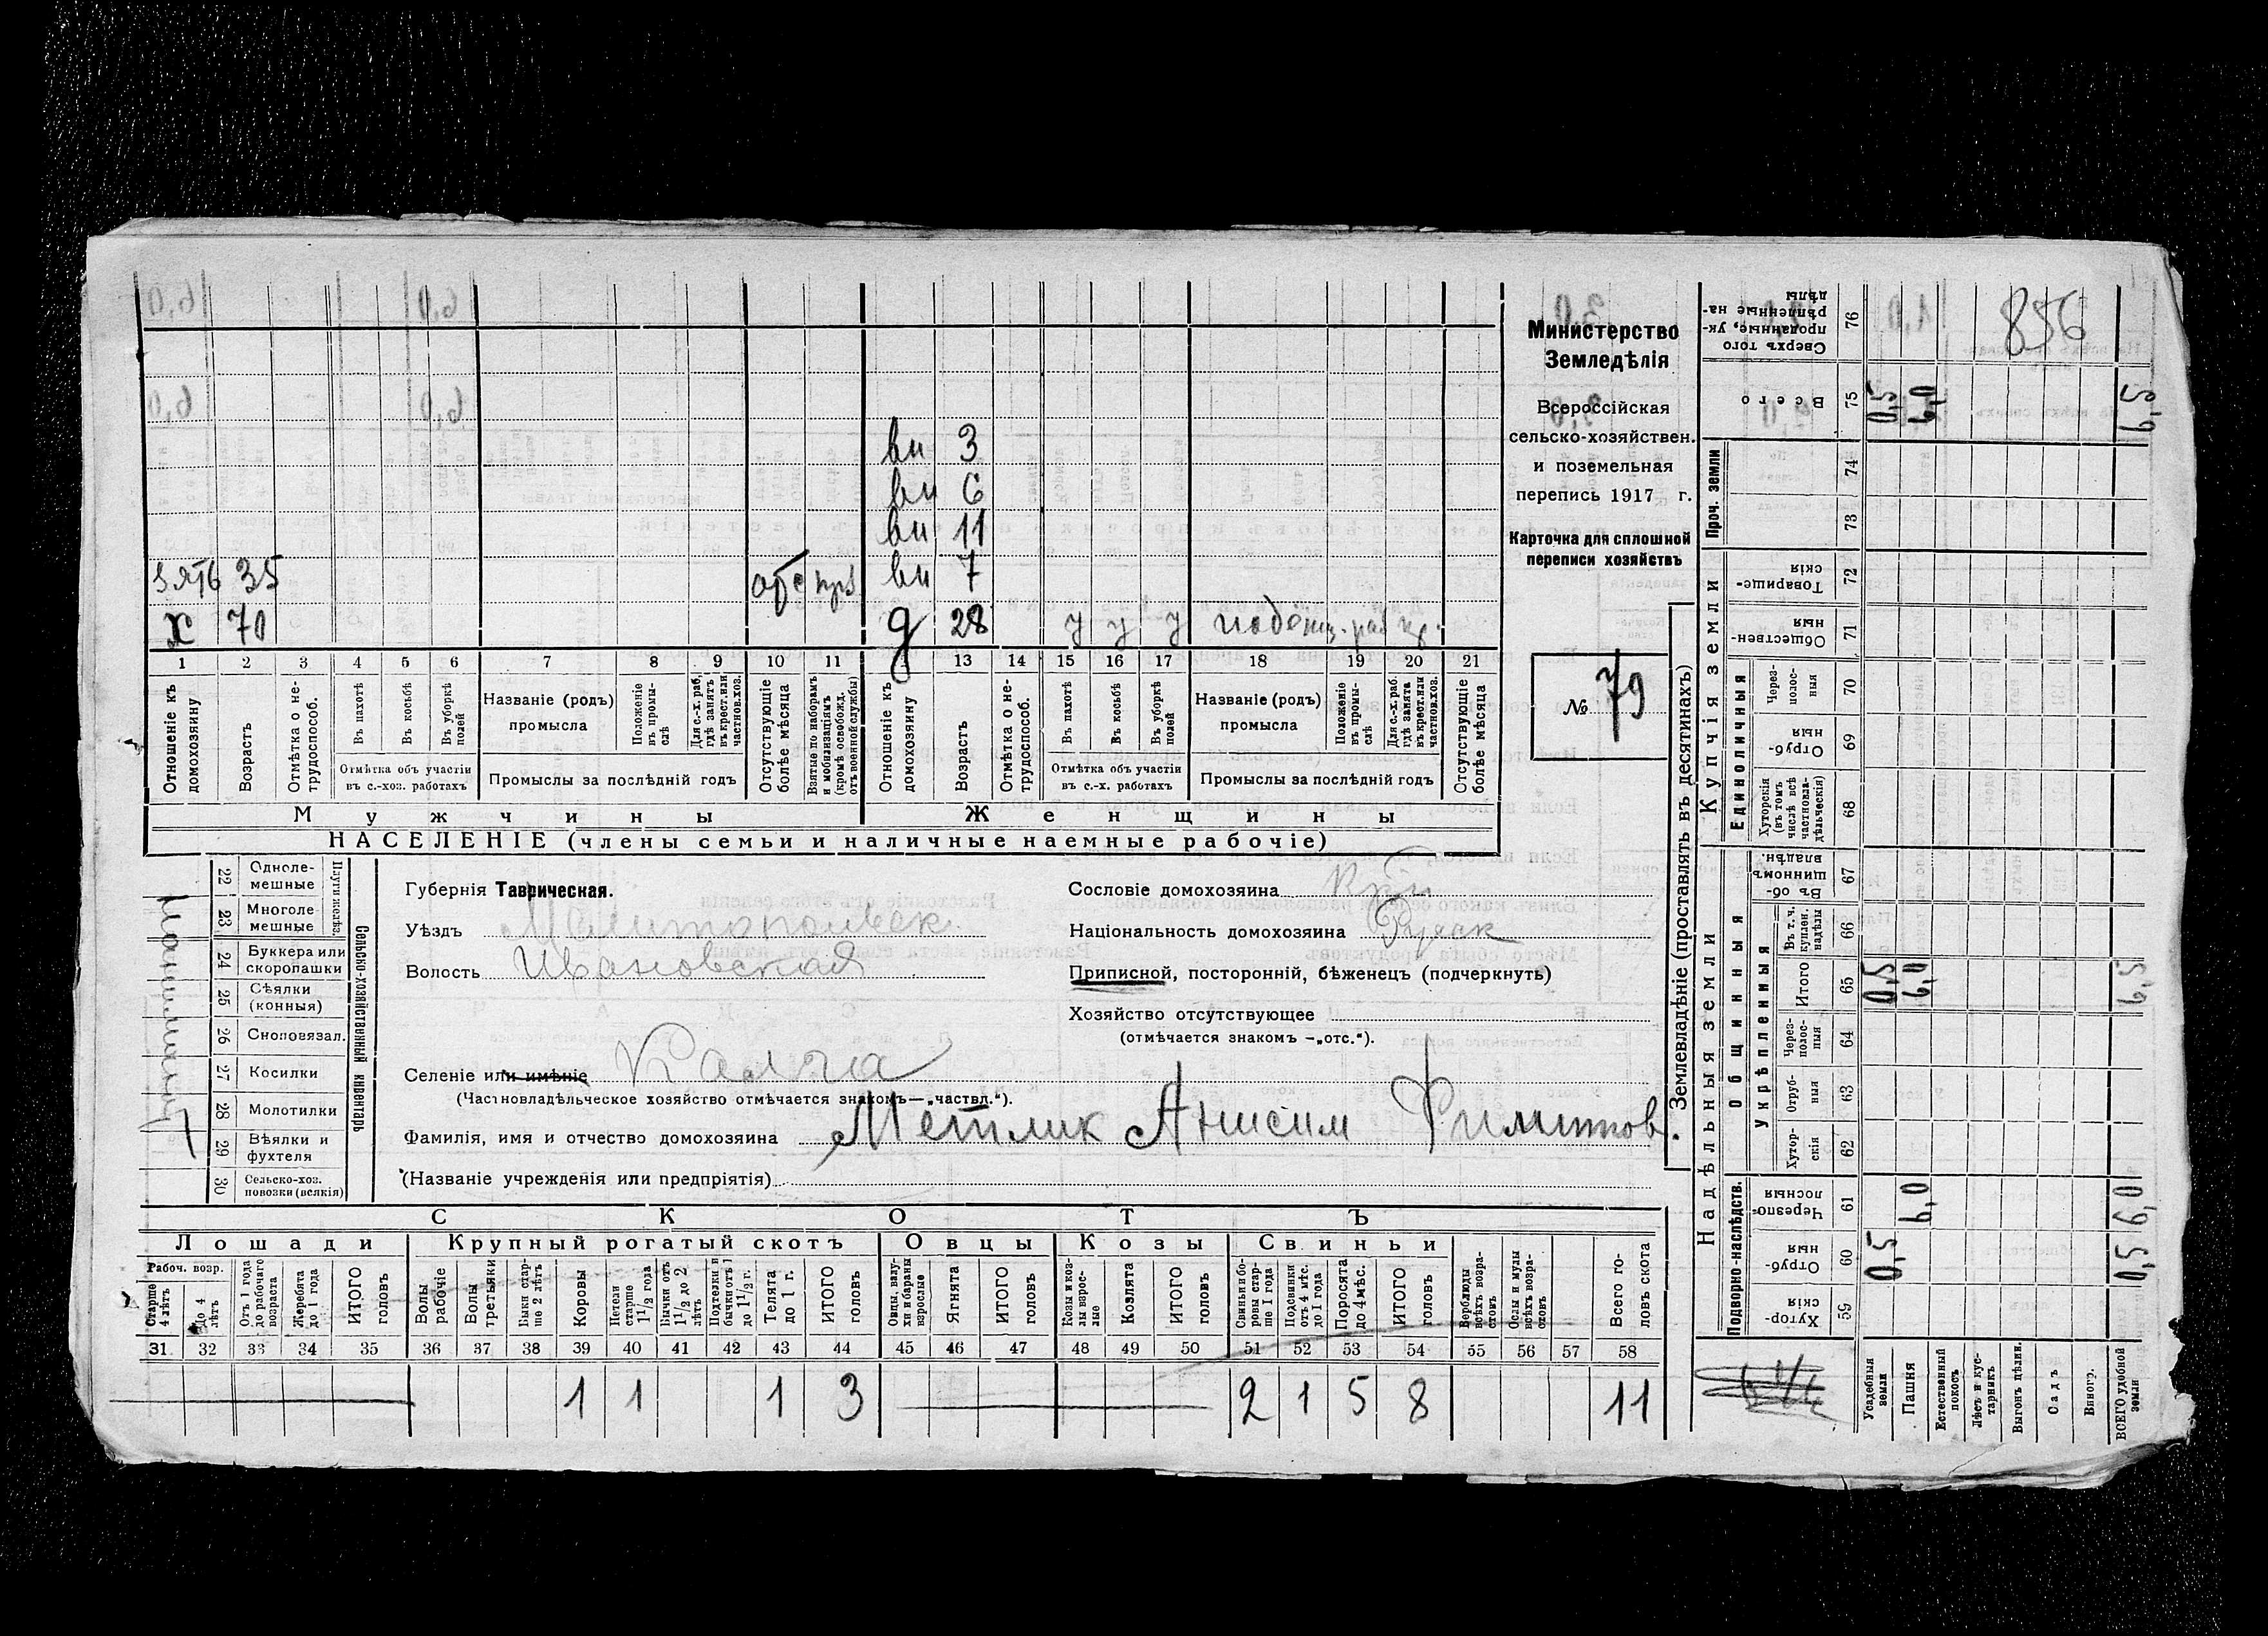 зять 35 отс
х 70
вн 3
вн 6
вн 11
вн 7
д 28 у у у
1 2 3 4 5 6 7 8 9 10 11 13 14 15 16 17 18 19 20 21
Отношеніе къ домохозяину
Возрастъ
Отмѣтка о не-трудоспособ.
Въ пахотѣ
Въ косьбѣ
Въ уборкѣ полей
Отмѣтка объ участіи въ с.-хоз. работахъ
Названіе (родъ) промысла
Положеніе въ промы-слѣ
Для с.-х. раб. гдѣ занятъ въ крест. или частнов. хоз.
Промыслы за послѣдній годъ
Отсутствующіе болѣе мѣсяца
Взятые по наборамъ и мобилизаціямъ (кромѣ освобожд. отъ военной службы)
Отношеніе къ домохозяину
Возрастъ
Отмѣтка о не-трудоспособ.
Въ пахотѣ
Въ косьбѣ
Въ уборкѣ полей
Отмѣтка объ участіи въ с.-х. работахъ
Названіе (родъ) промысла
Положеніе въ промы-слѣ
Для с.-х. раб. гдѣ занята въ крест. или частнов. хоз.
Промыслы за послѣдній годъ
Отсутствующіе болѣе мѣсяца
Мужчины Женщины
НАСЕЛЕНІЕ (члены семьи и наличные наемные рабочіе)
Министерство
Земледѣлія
Всероссійская
сельско-хозяйствен.
и поземельная
перепись 1917 г.
Карточка для сплошной
переписи хозяйствъ
№ 79
22 Одноле-мешные
23 Многоле мешные
24 Буккера или скоропашки
25 Сѣялки (конныя)
26 Сноповязал.
27 Косилки
28 Молотилки
29 Вѣялки и фухтеля
30 Сельско-хоз. повозки (всякія)
Плуги желѣз.
Сельско-хозяйственный инвентарь
Губернія Таврическая.
Уѣздъ Мелитопольск
Волость Ивановская
Селеніе или имѣніе Калга
(Частновладѣльческое хозяйство отмѣчается знакомъ—„частвл.“).
Фамилія, имя и отчество домохозяина Метлик Анисим Филиппов.
(Названіе учрежденія или предпріятія)
Сословіе домохозяина
Національность домохозяина Русск
Приписной, посторонній, бѣженецъ (подчеркнуть)
Хозяйство отсутствующее
(отмѣчается знакомъ —„отс.“).
СКОТЪ
Лошади Крупный рогатый скотъ Овцы Козы Свиньи
Рабоч. возр.
Старше 4 лѣтъ
До 4 лѣтъ
Отъ 1 года до рабочаго возраста
Жеребята до 1 года
ИТОГО головъ
Волы рабочіе
Волы третьяки
Быки стар-ше 2 лѣтъ
Коровы
Нетели старше 1 1/2 года
Бычки отъ 1 1/2 до 2 лѣтъ
Подтелки и бычки отъ 1 до 1 1/2 г.
Телята до 1 г.
ИТОГО головъ
Овцы, валу-хи и бараны взрослые
Ягнята
ИТОГО головъ
Козы и коз-лы взрос-лые
Козлята
ИТОГО головъ
Свиньи и бо-ровы стар-ше 1 года
Подсвинки отъ 4 мѣс. до 1 года
Поросята до 4 мѣс.
ИТОГО головъ
Верблюды всѣхъ возра-стовъ
Ослы и мулы всѣхъ возра-стовъ
Всего го-ловъ скота
31 32 33 34 35 36 37 38 39 40 41 42 43 44 45 46 47 48 49 50 51 52 53 54 55 56 57 58
1 1 1 3 2 1 5 8 11
Землевладѣніе (проставлять въ десятинахъ)
Купчія земли
Надѣльныя земли
856
Сверхъ того проданные, ук-рѣпленные на-дѣлы 76
Всего 75 0,5 6,0 6,5
Проч. земли 74 73
Товарище-скія 72
Обществен-ныя 71
Единоличныя
Через-полос-ныя 70
Отруб-ныя 69
Хуторскія (въ томъ числѣ всѣ частновла-дѣльческія) 68
Общинныя
Въ об-щинномъ владѣн. 67
Укрѣпленныя
Въ т. ч. куплен. надѣлы 66
Итого 65 0,5 6,0 6,5
Через-полос-ныя 64
Отруб-ныя 63
Хутор-скія 62
Подворно-наслѣдств.
Черезпо-лосныя 61 6,0 6,0
Отруб-ныя 60 0,5 0,5
Хутор-скія 59
Усадебныя земли
Пашня
Естественный покосъ
Лѣсъ и кус-тарникъ
Выгонъ цѣлин.
Садъ
Виногр.
ВСЕГО удобной земли